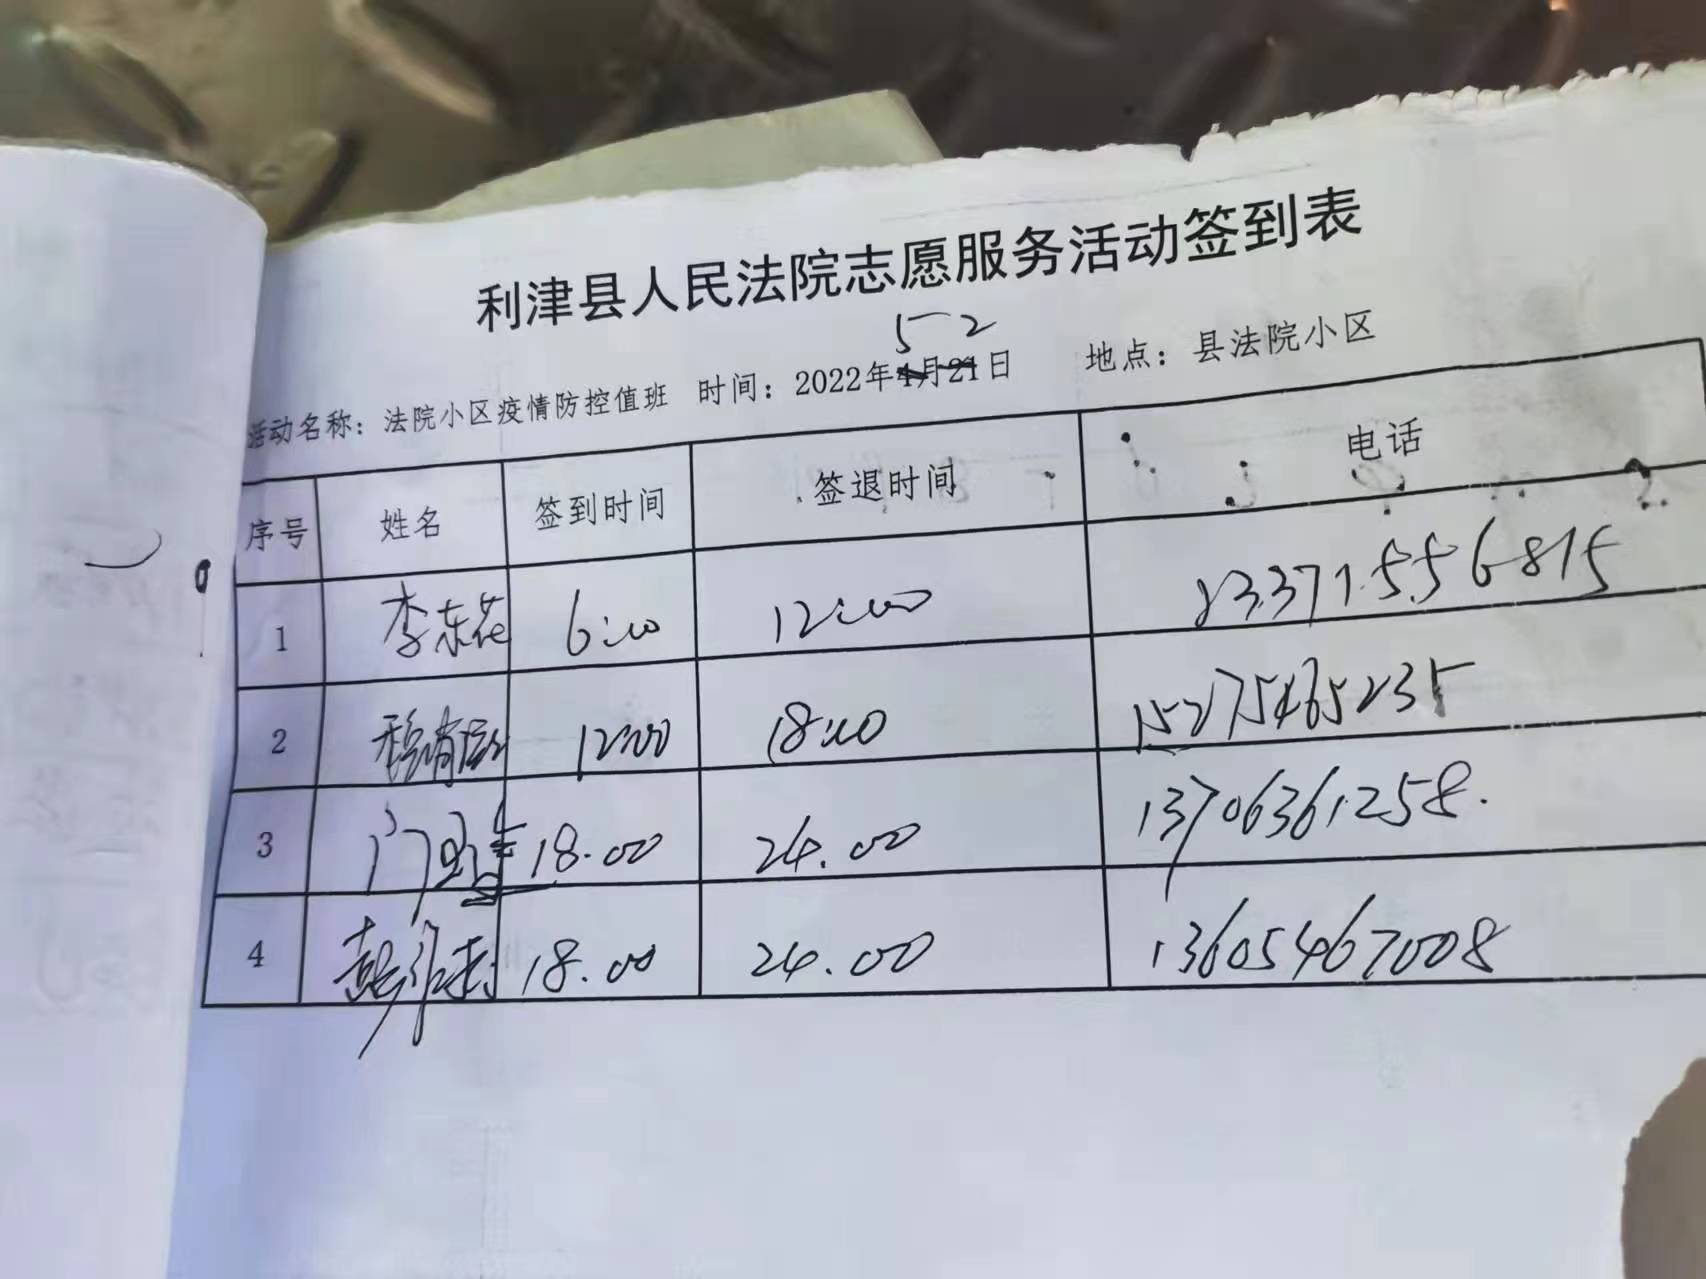 利津县人民法院志愿服务活动签到表
活动名称：法院小区疫情防控值班 时间：2022年5月2日 地点：县法院小区
序号 姓名 签到时间 签退时间 电话
1 李东花 6:00 12:00 13371556815
2 12:00 18:00 15275465235
3 18.00 24.00 13706361258.
4 18.00 24.00 13605467008